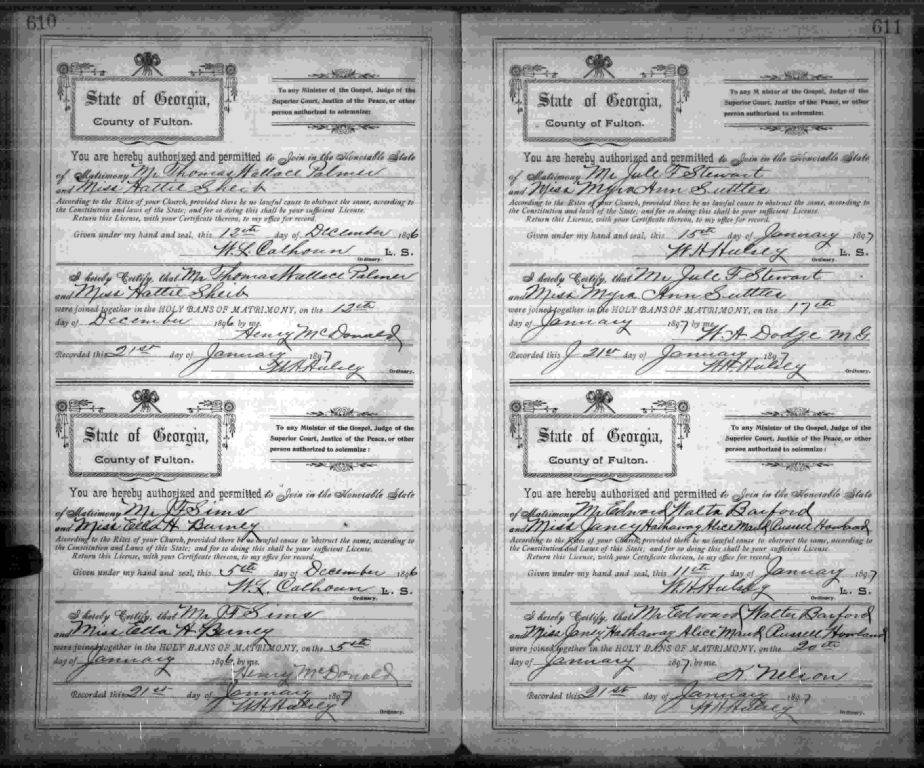 610
State of Georgia,
County of Fulton.
To any Minister of the Gospel, Judge of the
Superior Court, Justice of the Peace, or other
person authorized to solemnize:
You are hereby authorized and permitted to Join in the Honorable State
of Matrimony Mr Thomas Wallace Palmer
and Miss Hattie Sheib
According to the Rites of your Church, provided there be no lawful cause to obstruct the same, according to
the Constitution and laws of the State; and for so doing this shall be your sufficient License.
Return this License, with your Certificate thereon, to my office for record.
Given under my hand and seal, this 12th day of December 1896
W. L. Calhoun L. S.
Ordinary.
I hereby Certify, that Mr Thomas Wallace Palmer
and Miss Hattie Sheib
were joined together in the HOLY BANS OF MATRIMONY, on the 12th
day of December 1896 by me.
Henry McDonald
Recorded this 21st day of January 1897
W H Hulsey
Ordinary.
State of Georgia,
County of Fulton.
To any Minister of the Gospel, Judge of the
Superior Court, Justice of the Peace, or other
person authorized to solemnize:
You are hereby authorized and permitted to Join in the Honorable State
of Matrimony Mr Sims
and Miss Ella H Burney
According to the Rites of your Church, provided there be no lawful cause to obstruct the same, according to
the Constitution and Laws of this State; and for so doing this shall be your sufficient License.
Return this License, with your Certificate thereon, to my office for record.
Given under my hand and seal, this 5th day of December 1896
W. L. Calhoun L. S.
Ordinary.
I hereby Certify, that Mr Sims
and Miss Ella H Burney
were joined together in the HOLY BANS OF MATRIMONY, on the 5th
day of January 1896, by me.
Henry McDonald
Recorded this 21st day of January 1897
W H Hulsey
Ordinary.
611
State of Georgia,
County of Fulton.
To any Minister of the Gospel, Judge of the
Superior Court, Justice of the Peace, or other
person authorized to solemnize:
You are hereby authorized and permitted to Join in the Honorable State
of Matrimony Mr Jule F Stewart
and Miss Myra Ann Suttles
According to the Rites of your Church, provided there be no lawful cause to obstruct the same, according to
the Constitution and laws of the State; and for so doing this shall be your sufficient License.
Return this License, with your Certificate thereon, to my office for record.
Given under my hand and seal, this 15th day of January 1897
W. H. Hulsey L. S.
Ordinary.
I hereby Certify, that Mr Jule F Stewart
and Miss Myra Ann Suttles
were joined together in the HOLY BANS OF MATRIMONY, on the 17th
day of January 1897 by me
W. A. Dodge M G
Recorded this J 21st day of January 1897
W H Hulsey
Ordinary.
State of Georgia,
County of Fulton.
To any Minister of the Gospel, Judge of the
Superior Court, Justice of the Peace, or other
person authorized to solemnize:
You are hereby authorized and permitted to Join in the Honorable State
of Matrimony Mr Edward Walter Barford
and Miss Janey Hathaway Alice Maud Russell Howland
According to the Rites of your Church, provided there be no lawful cause to obstruct the same, according to
the Constitution and Laws of this State; and for so doing this shall be your sufficient License.
Return this License, with your Certificate thereon, to my office for record.
Given under my hand and seal, this 11th day of January 1897
W. H. Hulsey L. S.
Ordinary.
I hereby Certify, that Mr Edward Walter Barford
and Miss Janey Hathaway Alice Maud Russell Howland
were joined together in the HOLY BANS OF MATRIMONY, on the 20th
day of January 1897, by me.
K. Nelson
Recorded this 21st day of January 1897
W H Hulsey
Ordinary.